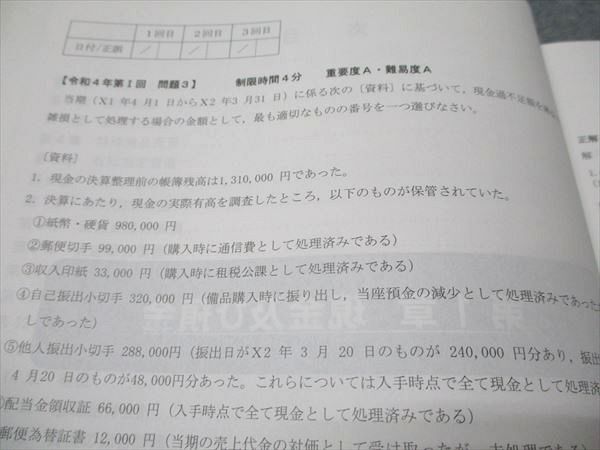 1回目 2回目 3回目
日付/正誤 / / /
【令和4年第Ⅰ回 問題3】 制限時間4分 重要度A・難易度A
当期（X1 年4 月1 日からX2 年3 月31 日）に係る次の〔資料〕に基づいて，現金過不足額を
雑損として処理する場合の金額として，最も適切なものの番号を一つ選びなさい。
〔資料〕
1．現金の決算整理前の帳簿残高は1,310,000 円であった。
2．決算にあたり，現金の実際有高を調査したところ，以下のものが保管されていた。
①紙幣・硬貨 980,000 円
②郵便切手 99,000 円（購入時に通信費として処理済みである）
③収入印紙 33,000 円（購入時に租税公課として処理済みである）
④自己振出小切手 320,000 円（備品購入時に振り出し，当座預金の減少として処理済みであった
しであった）
⑤他人振出小切手 288,000円（振出日がX2 年 3 月 20 日のものが 240,000 円分あり，振出
4 月20 日のものが48,000円分あった。これらについては入手時点で全て現金として処理済
配当金領収証 66,000 円（入手時点で全て現金として処理済みである）
郵便為替証書 12,000 円（当期の売上代金の対価として受け取ったが，未処理である）
第1章 現金及び預金
正解
解
1.